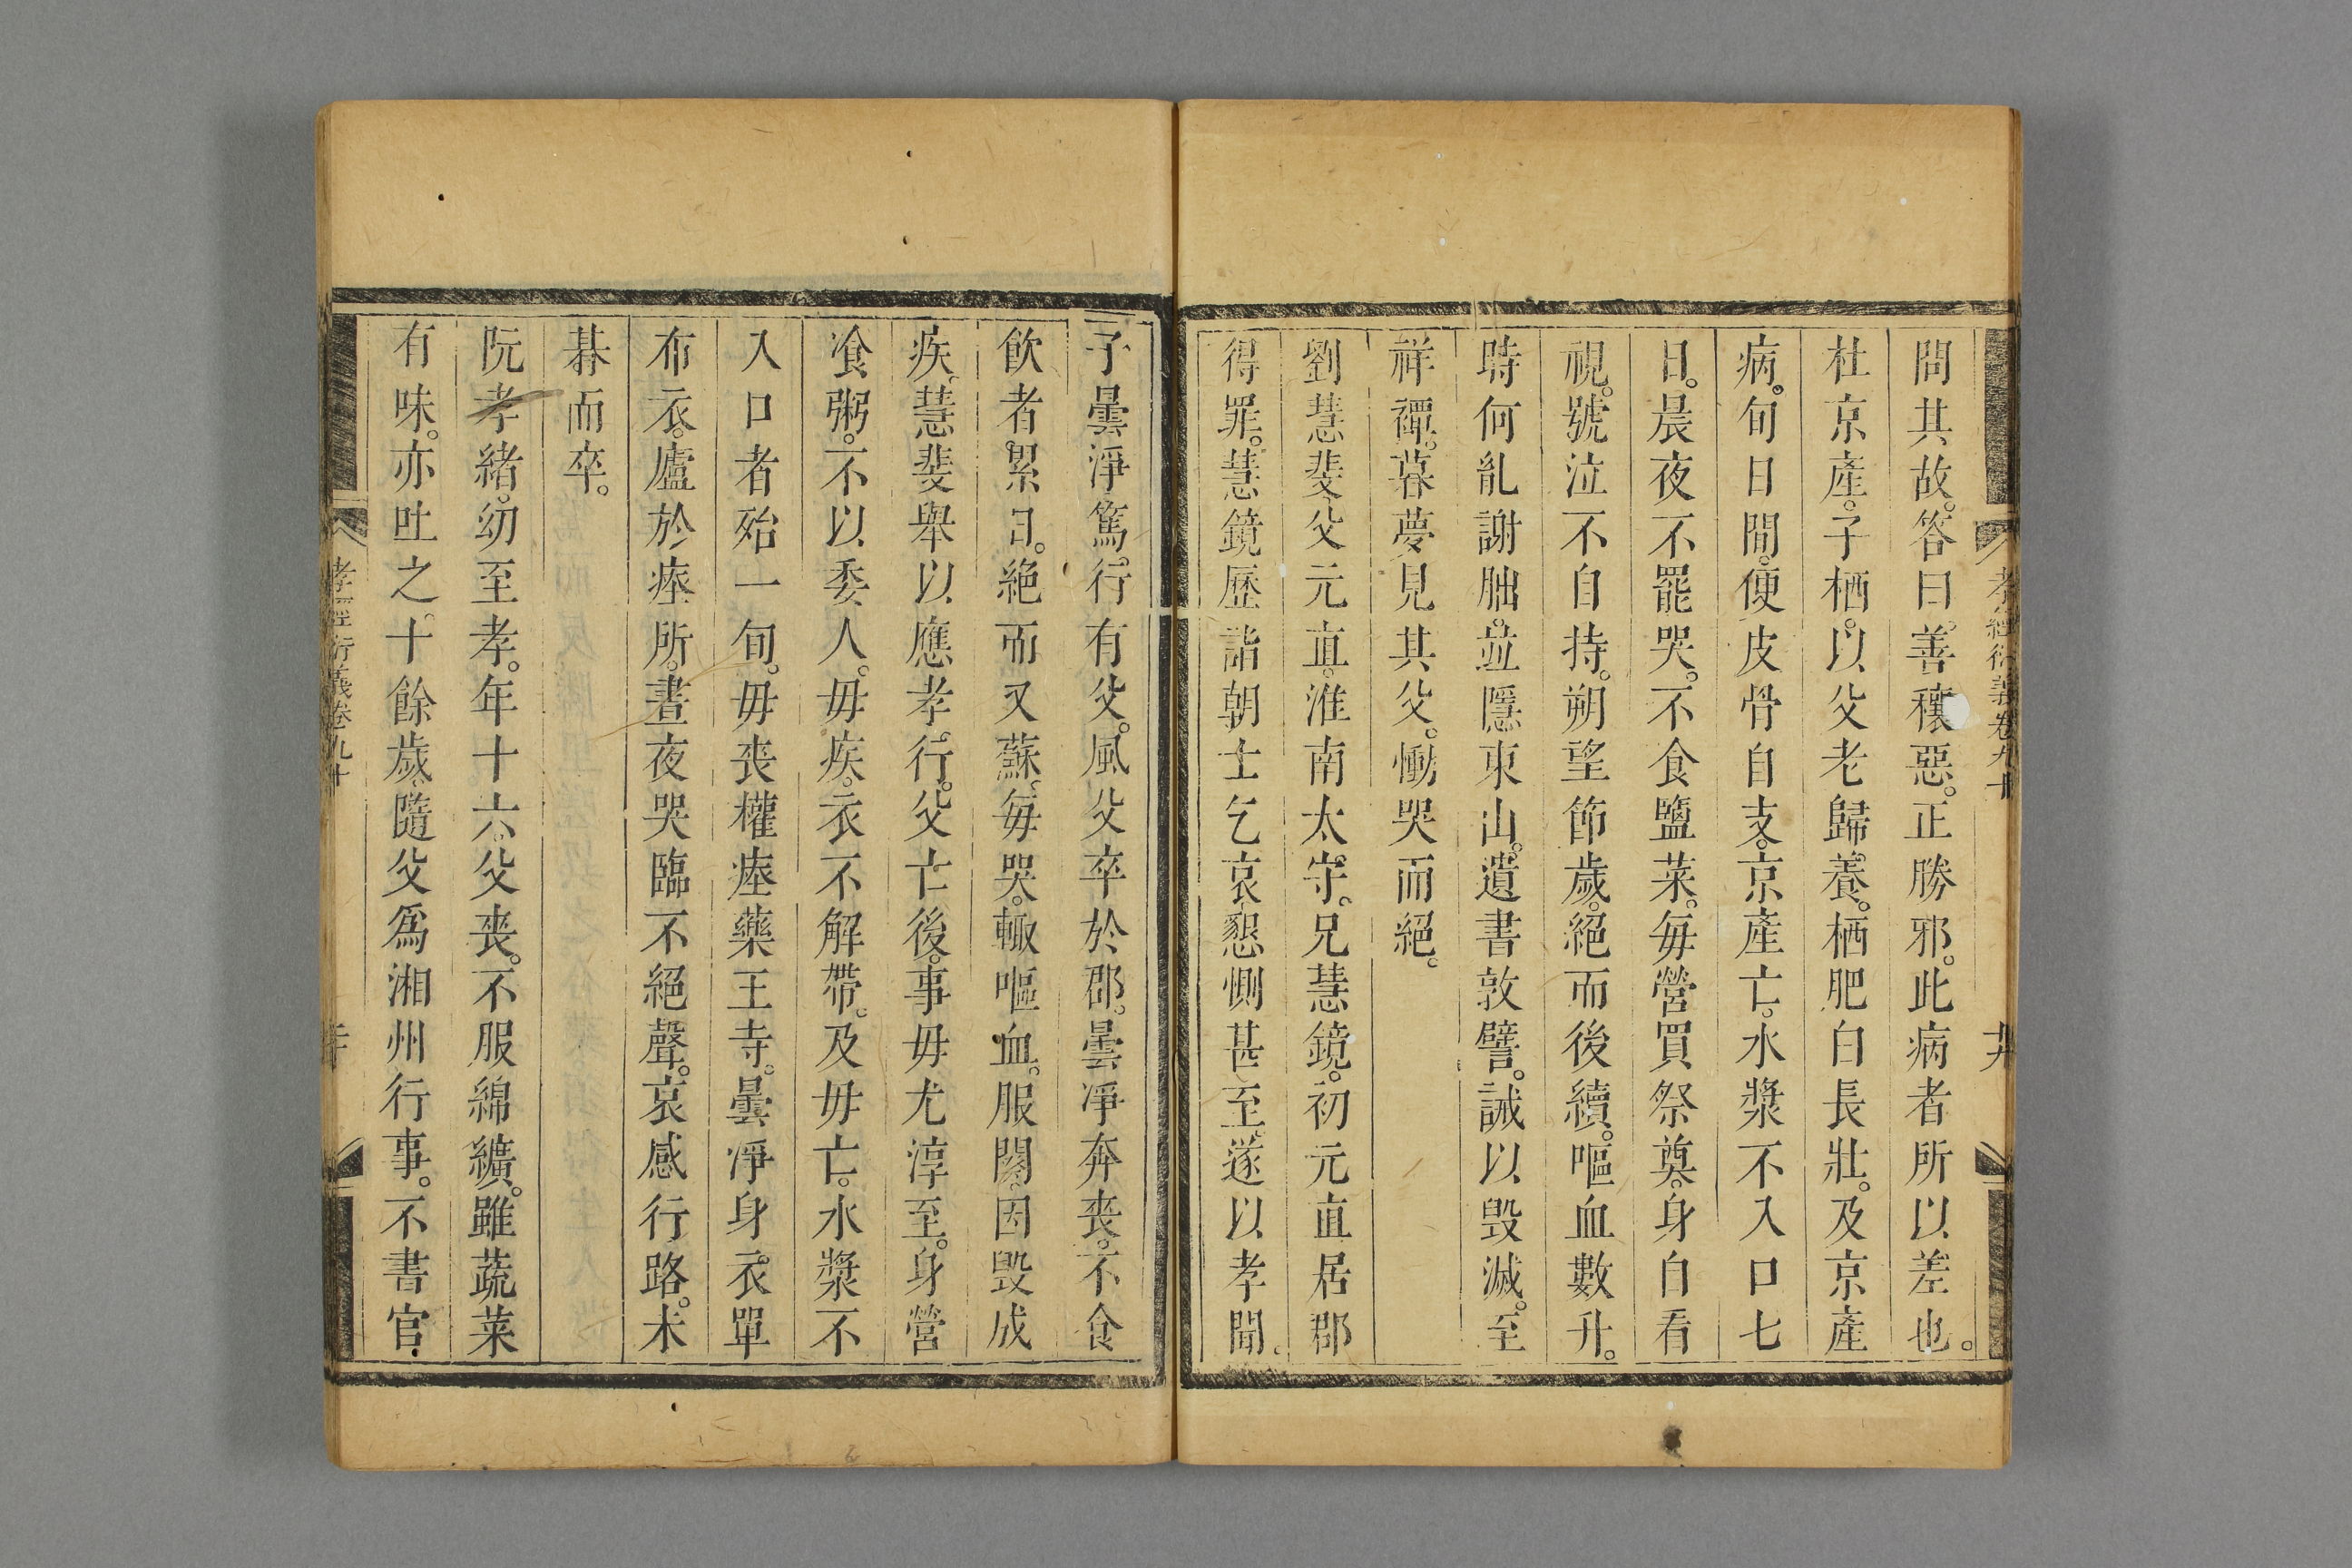 孝經衍義卷九十
十九
問其故。答曰。善穰惡。正勝邪。此病者所以差也。
杜京產。子栖。以父老歸養。栖肥白長壯。及京產
病。旬日間。便皮骨自支。京產亡。水漿不入口七
日。晨夜不罷哭。不食鹽菜。每營買祭奠。身自看
視。號泣不自持。朔望節歲。絕而後續。嘔血數升。
時何胤謝朏。並隱東山。遺書敦譬。誡以毀滅。至
祥禫。暮夢見其父。慟哭而絕。
劉慧斐父元直。淮南太守。兄慧鏡。初元直居郡
得罪。慧鏡歷詣朝士乞哀。懇惻甚至。遂以孝聞。
子曇淨篤。行有父。風父卒於郡。曇凈奔喪。不食
飲者。累日。絕而又蘇。每哭。輙嘔血。服闋。因毀成
疾。慧斐舉以應孝。行。父亡後。事毋尤淳至。身營
飡粥。不以委人。毋疾。衣不解帶。及毋亡。水漿不
入口者殆一旬。毋喪權瘞藥王寺。曇凈身衣。單
布衣。廬於瘞所。晝夜哭臨不絕聲。哀感行路。未
朞而卒。
阮孝緒。幼至孝。年十六。父喪。不服綿纊。雖蔬菜
有味。亦吐之。十餘歲。隨父爲湘州行事。不書官
孝經衍義卷九十
二十